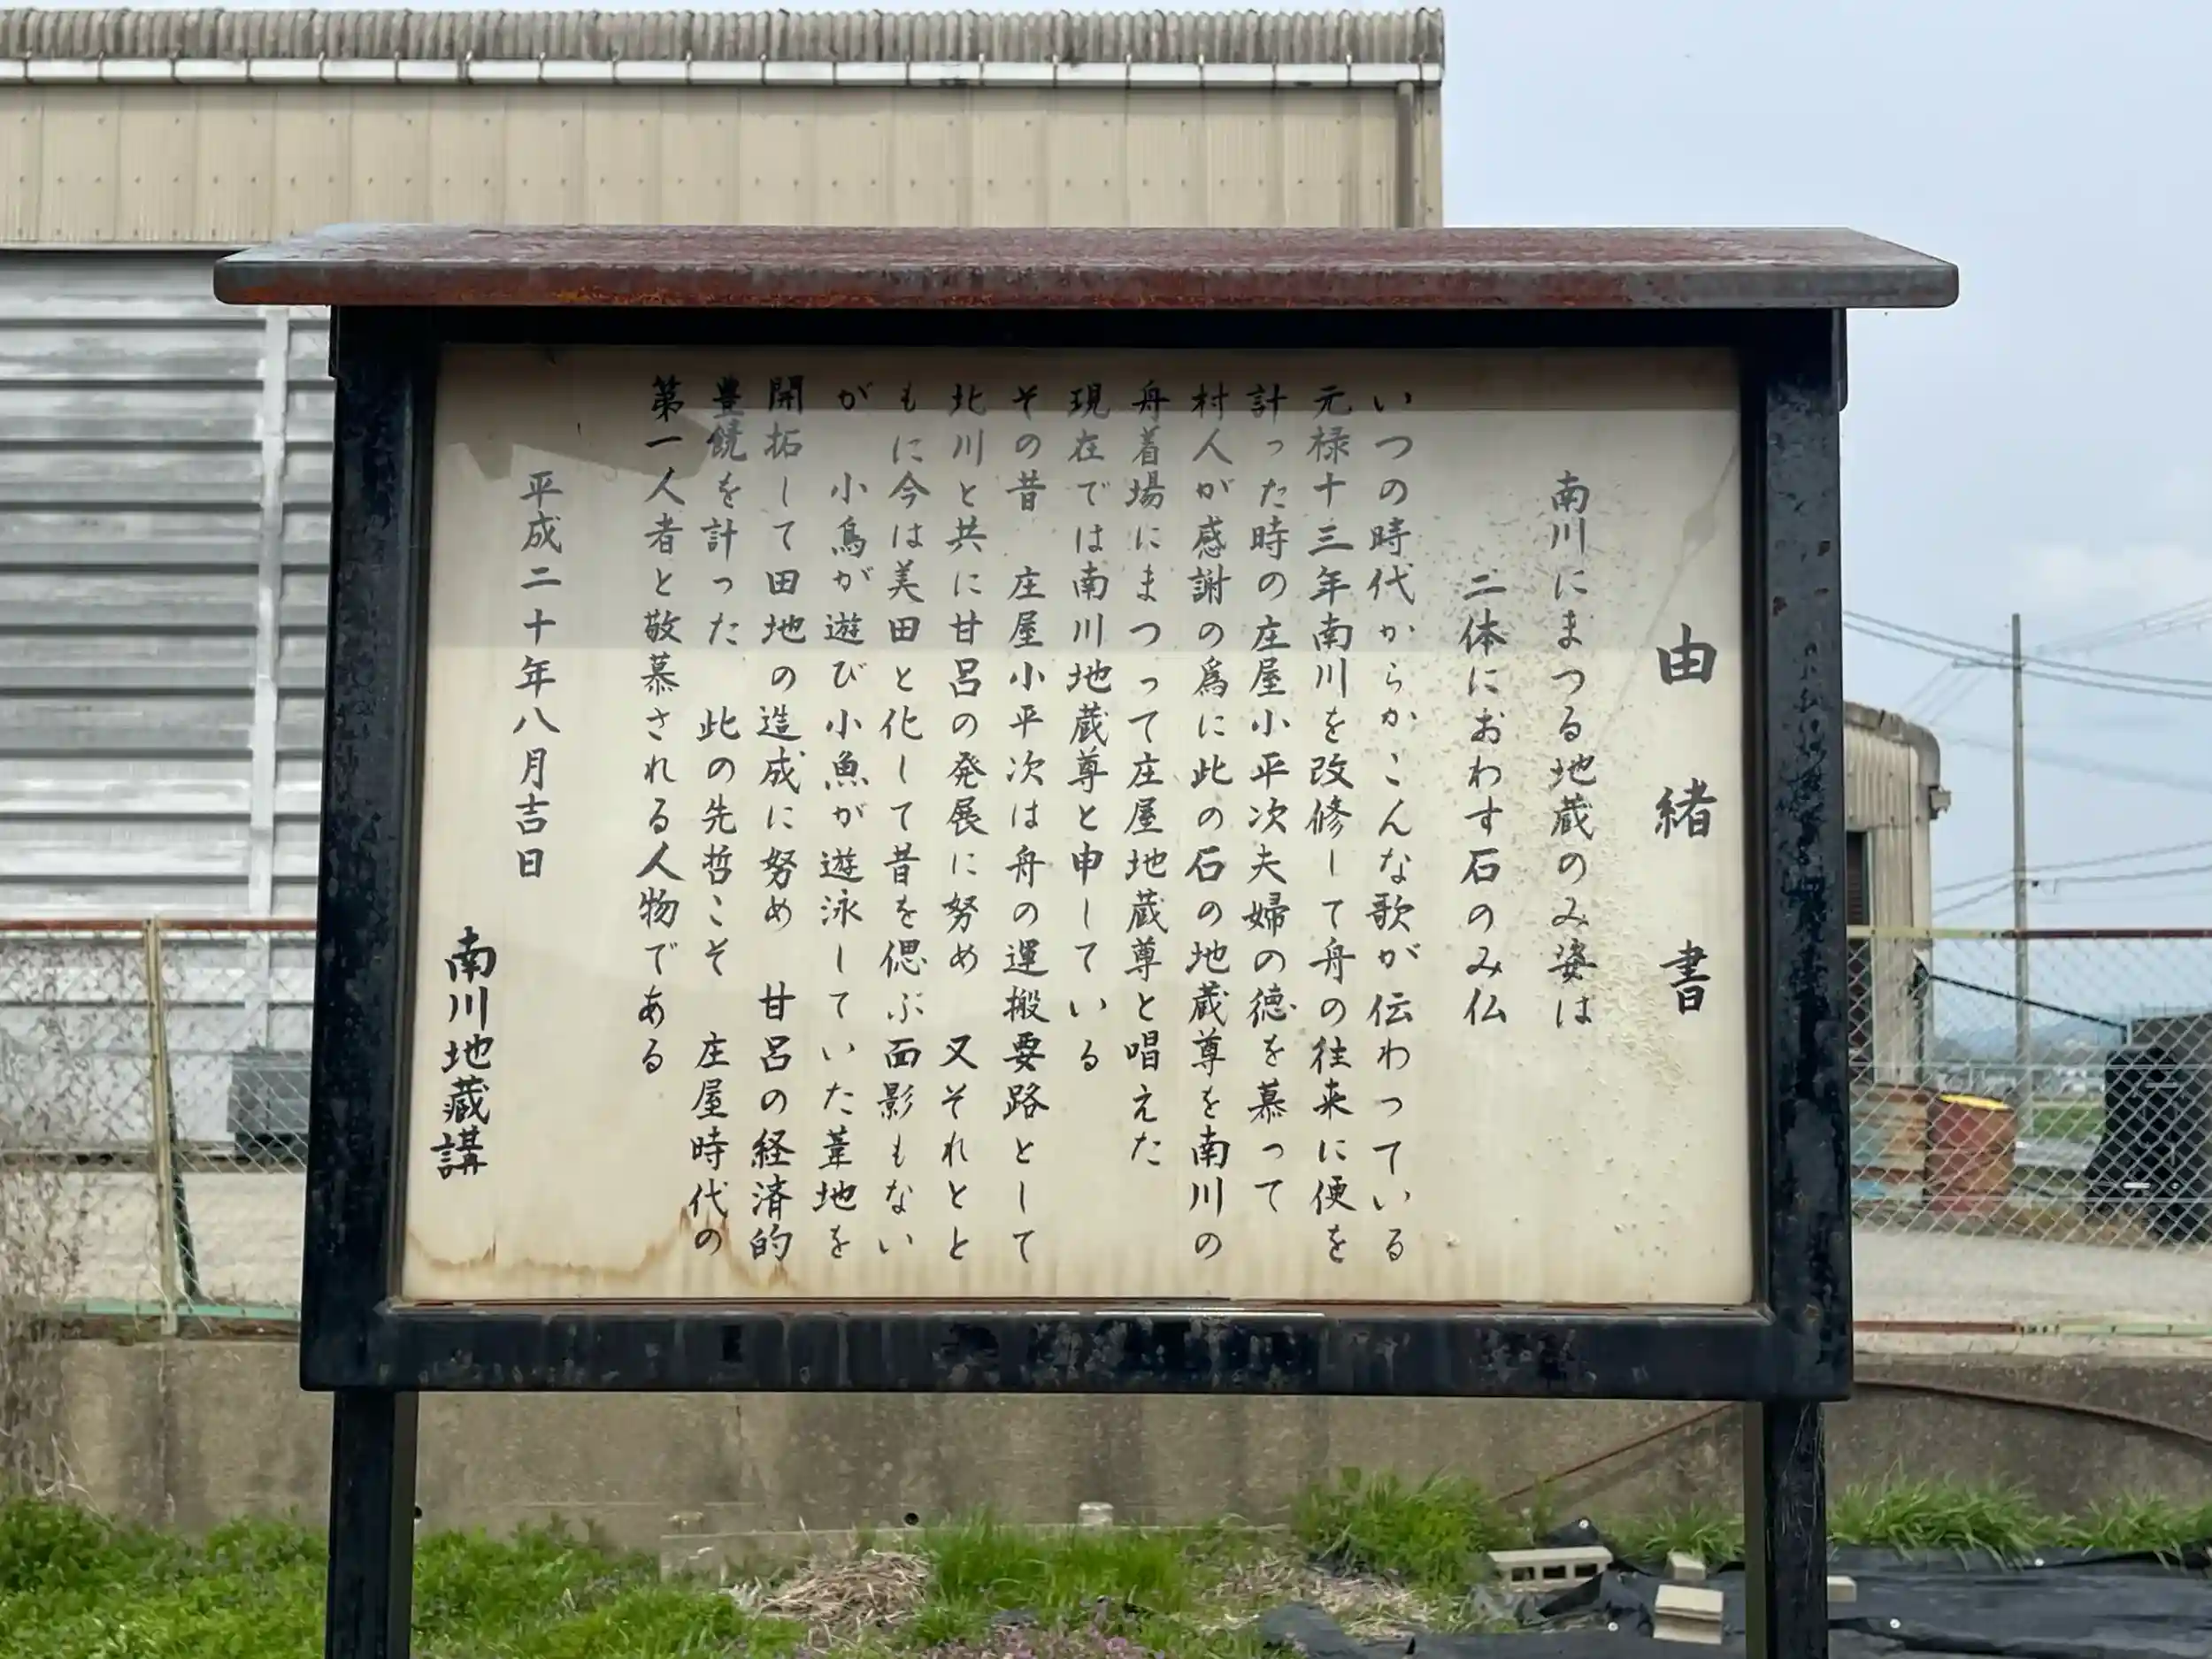 由緒書
南川にまつる地蔵のみ姿は
二体におわす石のみ仏
いつの時代からかこんな歌が伝わっている
元禄十三年南川を改修して舟の往来に便を
計った時の庄屋小平次夫婦の徳を慕って
村人が感謝の為に此の石の地蔵尊を南川の
舟着場にまつって庄屋地蔵尊と唱えた
現在では南川地蔵尊と申している
その昔 庄屋小平次は舟の運搬要路として
北川と共に甘呂の発展に努め 又それとと
もに今は美田と化して昔を偲ぶ面影もない
が 小鳥が遊び小魚が遊泳していた葦地を
開拓して田地の造成に努め 甘呂の経済的
豊饒を計った 此の先哲こそ 庄屋時代の
第一人者と敬慕される人物である
平成二十年八月吉日
南川地蔵講